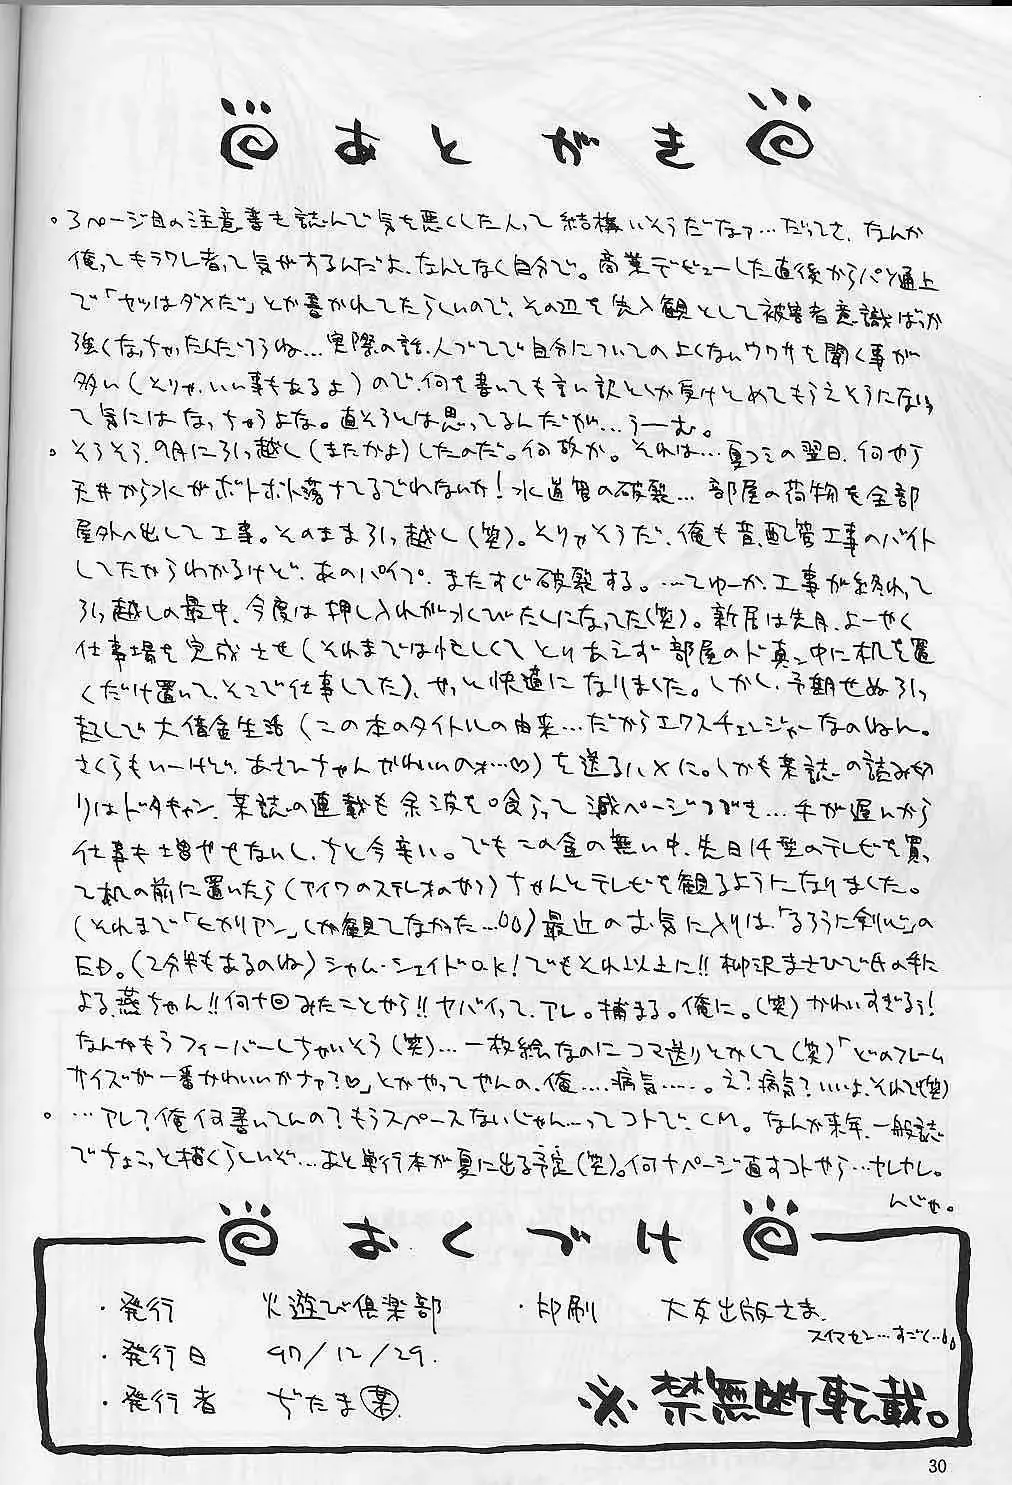 あとがき
。3ページ目の注意書も読んで気を悪くした人って結構いそうだなァ…だってさ、なんか
俺ってキラワレ者って気がするんだよ、なんとなく自分で。商業デビューした直後からパソ通上
で「ヤツはダメだ」とか書かれてたらしいので、その辺を先入観として被害者意識ばっか
強くなっちゃったんだろうね…実際の話、人づてで自分についての良くないウワサを聞く事が
多い(そりゃ、いい事もあるよ)ので、何を書いても言い訳としか受けとめてもらえそうにないっ
て気にはなっちゃうよな。直そうとは思ってるんだが…うーむ。
。そうそう、9月に引っ越し(またかよ)したのだ。何故か。それは…夏コミの翌日、何やら
天井から水がボトボト落ちてるでれないか!水道管の破裂…部屋の荷物を全部
屋外へ出して工事。そのまま引っ越し(笑)。そりゃそうだ、俺も昔、配管工事のバイト
してたからわかるけど、あのパイプ、またすぐ破裂する。…てゆーか、工事が終わって
引っ越しの最中、今度は押し入れが水びたしになってた(笑)。新居は先月、よーやく
仕事場を完成させ(それまでは忙しくてとりあえず部屋のド真ン中に机を置
くだけ置いて、そこで仕事してた)、やっと快適になりました。しかし、予期せぬ引っ
越しで大借金生活(この本のタイトルの由来…だからエクスチェンジャーなのねん。
さくらもいーけど、あさひちゃんかわいいのォ…♡)を送るハメに。しかも某誌の読み切
りはドタキャン、某誌の連載も余波を喰らって減ページ つづき…手が遅いから
仕事も増やせないし、ちと今辛い。でもこの金の無い中、先日14型のテレビを買っ
て机の前に置いたら(アイワのステレオのやつ)ちゃんとテレビを観るようになりました。
(それまで「ヒカリアン」しか観てなかった…)最近のお気に入りは「るろうに剣心」の
ED。(2分半もあるのね)シャム・シェイドO.K!でもそれ以上に!!柳沢まさひで氏の手に
よる燕ちゃん!!何十回みたことやら!!ヤバイって、アレ。捕まる。俺に。(笑)かわいすぎるぅ!
なんかもうフィーバーしちゃいそう(笑)…一枚絵なのにコマ送りとかして(笑)「どのフレーム
サイズが一番かわいいかナァ?♡」とかやってやんの、俺……病気……。え?病気?いいよ、それで(笑)
。…アレ?俺何書いてんの?もうスペースないじゃん…ってコトで、CM。なんか来年、一般誌
でちょこっと描くらしいぞ…あと単行本が夏に出る予定(笑)。何十ページ直すコトやら…ヤレヤレ。
んじゃ。
おくづけ
・発行 火遊び倶楽部 ・印刷 大友出版さま
スイマセン…すごく…
・発行日 97/12/29.
・発行者 ぢたま(某)
※禁無断転載。
30